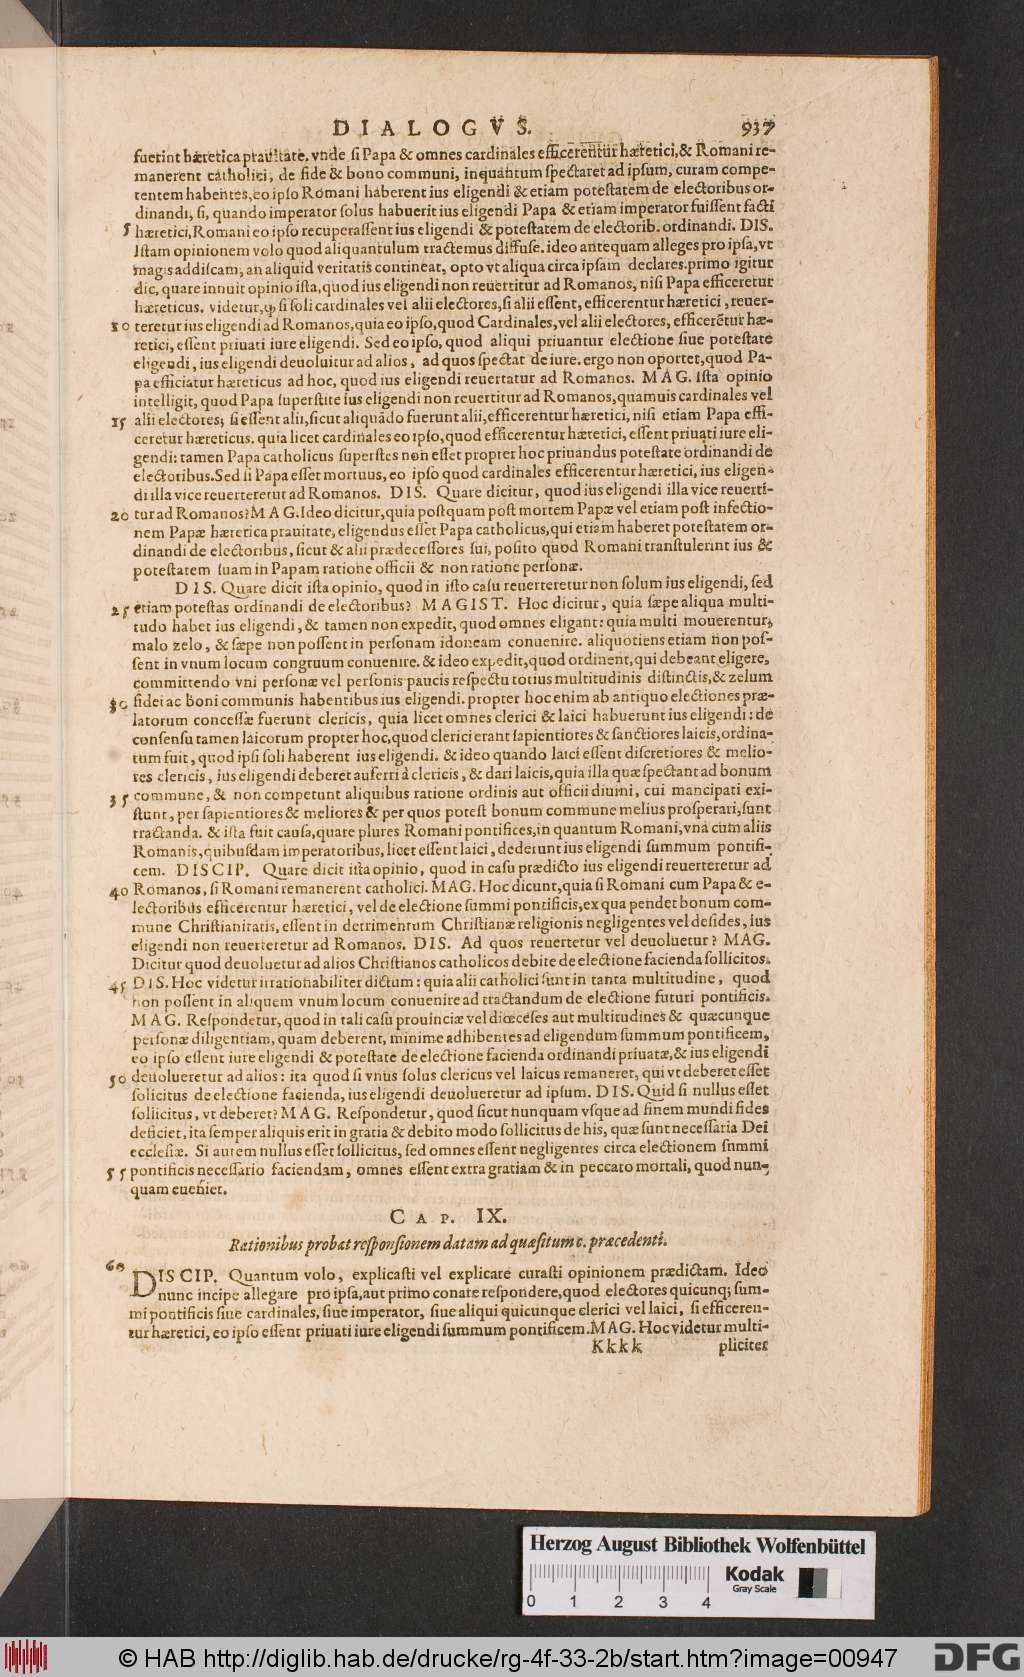 DIALOGVS. 937
fuerint hæretica prauitate. vnde si Papa & omnes cardinales efficerentur hæretici, & Romani re-
manerent catholici, de fide & bono communi, inquantum spectaret ad ipsum, curam compe-
tentem habentes, eo ipso Romani haberent ius eligendi & etiam potestatem de electoribus or-
dinandi, si, quando imperator solus habuerit ius eligendi Papa & etiam imperator fuissent facti
5 hæretici, Romani eo ipso recuperassent ius eligendi & potestatem de electorib. ordinandi. DIS.
Istam opinionem volo quod aliquantulum tractemus diffuse. ideo antequam alleges pro ipsa, vt
magis addiscam, an aliquid veritatis contineat, opto vt aliqua circa ipsam declares. primo igitur
dic, quare innuit opinio ista, quod ius eligendi non reuertitur ad Romanos, nisi Papa efficeretur
hæreticus. videtur, ꝙ si soli cardinales vel alii electores, si alii essent, efficerentur hæretici, reuer-
10 teretur ius eligendi ad Romanos, quia eo ipso, quod Cardinales, vel alii electores, efficerētur hæ-
retici, essent priuati iure eligendi. Sed eo ipso, quod aliqui priuantur electione siue potestate
eligendi, ius eligendi deuoluitur ad alios, ad quos spectat de iure. ergo non oportet, quod Pa-
pa efficiatur hæreticus ad hoc, quod ius eligendi reuertatur ad Romanos. MAG. Ista opinio
intelligit, quod Papa superstite ius eligendi non reuertitur ad Romanos, quamuis cardinales vel
15 alii electores; si essent alii, sicut aliquādo fuerunt alii, efficerentur hæretici, nisi etiam Papa effi-
ceretur hæreticus. quia licet cardinales eo ipso, quod efficerentur hæretici, essent priuati iure eli-
gendi: tamen Papa catholicus superstes non esset propter hoc priuandus potestate ordinandi de
electoribus. Sed si Papa esset mortuus, eo ipso quod cardinales efficerentur hæretici, ius eligen-
di illa vice reuerteretur ad Romanos. DIS. Quare dicitur, quod ius eligendi illa vice reuerti-
20 tur ad Romanos? MAG. Ideo dicitur, quia postquam post mortem Papæ vel etiam post infectio-
nem Papæ hæretica prauitate, eligendus esset Papa catholicus, qui etiam haberet potestatem or-
dinandi de electoribus, sicut & alii prædecessores sui, posito quod Romani transtulerint ius &
potestatem suam in Papam ratione officii & non ratione personæ.
DIS. Quare dicit ista opinio, quod in isto casu reuerteretur non solum ius eligendi, sed
25 etiam potestas ordinandi de electoribus? MAGIST. Hoc dicitur, quia sæpe aliqua multi-
tudo habet ius eligendi, & tamen non expedit, quod omnes eligant: quia multi mouerentur,
malo zelo, & sæpe non possent in personam idoneam conuenire. aliquotiens etiam non pos-
sent in vnum locum congruum conuenire. & ideo expedit, quod ordinent, qui debeant eligere,
committendo vni personæ vel personis paucis respectu totius multitudinis distinctis, & zelum
30 fidei ac boni communis habentibus ius eligendi. propter hoc enim ab antiquo electiones præ-
latorum concessæ fuerunt clericis, quia licet omnes clerici & laici habuerunt ius eligendi: de
consensu tamen laicorum propter hoc, quod clerici erant sapientiores & sanctiores laicis, ordina-
tum fuit, quod ipsi soli haberent ius eligendi. & ideo quando laici essent discretiores & melio-
res clericis, ius eligendi deberet auferri à clericis, & dari laicis, quia illa quæ spectant ad bonum
35 commune, & non competunt aliquibus ratione ordinis aut officii diuini, cui mancipati exi-
stunt, per sapientiores & meliores & per quos potest bonum commune melius prosperari, sunt
tractanda. & ista fuit causa, quare plures Romani pontifices, in quantum Romani, vna cum aliis
Romanis, quibusdam imperatoribus, licet essent laici, dederunt ius eligendi summum pontifi-
cem. DISCIP. Quare dicit ista opinio, quod in casu prædicto ius eligendi reuerteretur ad
40 Romanos, si Romani remanerent catholici. MAG. Hoc dicunt, quia si Romani cum Papa & e-
lectoribus efficerentur hæretici, vel de electione summi pontificis, ex qua pendet bonum com-
mune Christianitatis, essent in detrimentum Christianæ religionis negligentes vel desides, ius
eligendi non reuerteretur ad Romanos. DIS. Ad quos reuertetur vel deuoluetur? MAG.
Dicitur quod deuoluetur ad alios Christianos catholicos debite de electione facienda sollicitos.
45 DIS. Hoc videtur irrationabiliter dictum: quia alii catholici sunt in tanta multitudine, quod
non possent in aliquem vnum locum conuenire ad tractandum de electione futuri pontificis.
MAG. Respondetur, quod in tali casu prouinciæ vel diœceses aut multitudines & quæcunque
personæ diligentiam, quam deberent, minime adhibentes ad eligendum summum pontificem,
eo ipso essent iure eligendi & potestate de electione facienda ordinandi priuatæ, & ius eligendi
50 deuolueretur ad alios: ita quod si vnus solus clericus vel laicus remaneret, qui vt deberet esset
solicitus de electione facienda, ius eligendi deuolueretur ad ipsum. DIS. Quid si nullus esset
sollicitus, vt deberet? MAG. Respondetur, quod sicut nunquam vsque ad finem mundi fides
deficiet, ita semper aliquis erit in gratia & debito modo sollicitus de his, quæ sunt necessaria Dei
ecclesiæ. Si autem nullus esset sollicitus, sed omnes essent negligentes circa electionem summi
55 pontificis necessario faciendam, omnes essent extra gratiam & in peccato mortali, quod nun-
quam eueniet.
CAP. IX.
Rationibus probat responsionem datam ad quæsitum c. præcedenti.
60 DISCIP. Quantum volo, explicasti vel explicare curasti opinionem prædictam. Ideo
nunc incipe allegare pro ipsa, aut primo conare respondere, quod electores quicunq; sum-
mi pontificis siue cardinales, siue imperator, siue aliqui quicunque clerici vel laici, si efficeren-
tur hæretici, eo ipso essent priuati iure eligendi summum pontificem. MAG. Hoc videtur multi-
Kkkk pliciter
Herzog August Bibliothek Wolfenbüttel
Kodak
Gray Scale
0 1 2 3 4
© HAB http://diglib.hab.de/drucke/rg-4f-33-2b/start.htm?image=00947
DFG